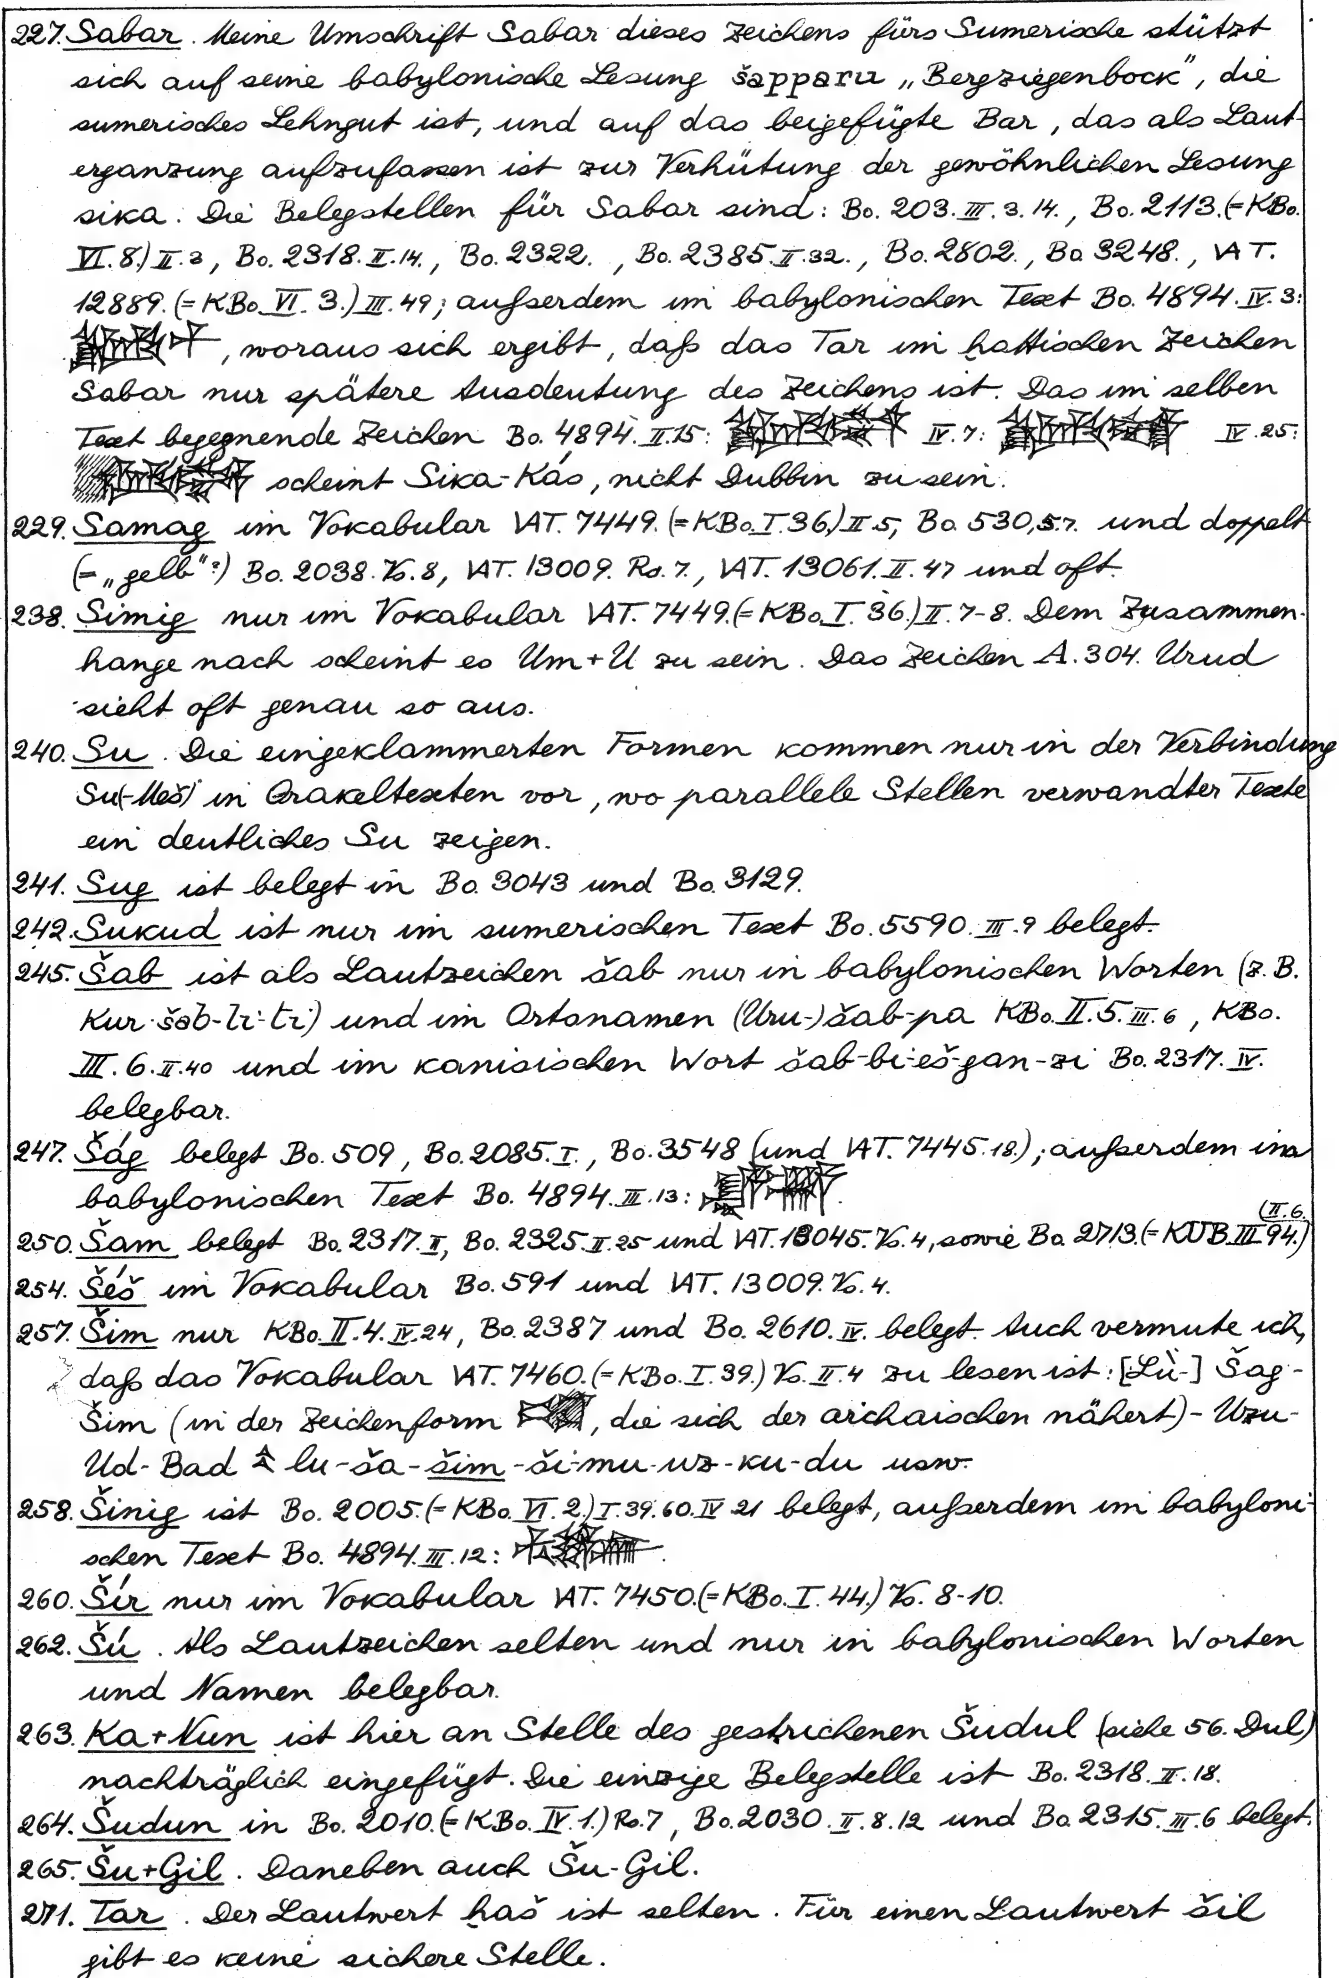 227. Sabar. Meine Umschrift Sabar dieses Zeichens fürs Sumerische stützt
sich auf seine babylonische Lesung šapparu „Bergziegenbock“, die
sumerisches Lehngut ist, und auf das beigefügte Bar, das als Laut-
erganzung aufzufassen ist zur Verhütung der gewöhnlichen Lesung
sika. Die Belegstellen für Sabar sind: Bo. 203. III. 3. 14., Bo. 2113. (=KBo.
VI. 8.) II. 3, Bo. 2318. II. 14., Bo. 2322. , Bo. 2385. II. 32., Bo. 2802., Bo 3248., VAT.
12889. (=KBo. VI. 3.) III. 49; außerdem im babylonischen Text Bo. 4894. IV. 3:
, woraus sich ergibt, daß das Tar im hattischen Zeichen
Sabar nur spätere Ausdeutung des Zeichens ist. Das im selben
Text begegnende Zeichen Bo. 4894. II. 15: IV. 7: IV. 25:
scheint Sika-Kás, nicht Dubbin zu sein.
229. Samag im Vokabular VAT. 7449. (=KBo. I. 36.) II. 5, Bo. 530, 5.7. und doppelt
(= „gelb“?) Bo. 2038. Vs. 8, VAT. 13009. Rs. 7., VAT. 13061. II. 47 und oft.
238. Simig nur im Vokabular VAT. 7449. (=KBo. I. 36.) II. 7-8. Dem Zusammen-
hange nach scheint es Um+U zu sein. Das Zeichen A. 304. Urud
sieht oft genau so aus.
240. Su. Die eingeklammerten Formen kommen nur in der Verbindung
Su(-Meš) in Orakeltexten vor, wo parallele Stellen verwandter Texte
ein deutliches Su zeigen.
241. Sug ist belegt in Bo. 3043 und Bo. 3129.
242. Sukud ist nur im sumerischen Text Bo. 5590. III. 9 belegt.
245. Šab ist als Lautzeichen šab nur in babylonischen Worten (z. B.
Kur šab-li-ti) und im Ortsnamen (Uru-)šab-pa KBo. II. 5. III. 6, KBo.
III. 6. II. 40 und im kanisischen Wort šab-bi-eš-gan-zi Bo. 2317. IV.
belegbar.
247. Šág belegt Bo. 509, Bo. 2085. I., Bo. 3548 (und VAT. 7445. 18.); außerdem im
babylonischen Text Bo. 4894. III. 13: .
250. Šam belegt Bo. 2317. II, Bo. 2325. II. 25 und VAT. 13045. Vs. 4, sowie Bo 2713. (=KUB. III. 94.) (II. 6.
254. Šéš im Vokabular Bo. 591 und VAT. 13009. Vs. 4.
257. Šim nur KBo. II. 4. IV. 24, Bo. 2387 und Bo. 2610. IV. belegt. Auch vermute ich,
daß das Vokabular VAT. 7460. (=KBo. I. 39.) Vs. II. 4 zu lesen ist: [Lù-] Šag-
Šim (in der Zeichenform , die sich der archaischen nähert)-Uzu-
Ud-Bad lu-ša-šim-ši-mu-uz-ku-du usw.
258. Šinig ist Bo. 2005. (=KBo. VI. 2.) I. 39. 60. IV 21 belegt, außerdem im babyloni-
schen Text Bo. 4894. III. 12: .
260. Šír nur im Vokabular VAT. 7450. (=KBo. I. 44.) Vs. 8-10.
262. Šú. Als Lautzeichen selten und nur in babylonischen Worten
und Namen belegbar.
263. Ka+Nun ist hier an Stelle des gestrichenen Šudul (siehe 56. Dul)
nachträglich eingefügt. Die einzige Belegstelle ist Bo. 2318. II. 18.
264. Šudun in Bo. 2010. (=KBo. IV. 1.) Rs. 7, Bo. 2030. II. 8. 12 und Bo 2315. III. 6 belegt.
265. Šu+Gil. Daneben auch Šu-Gil.
271. Tar. Der Lautwert haš ist selten. Für einen Lautwert šil
gibt es keine sichere Stelle.